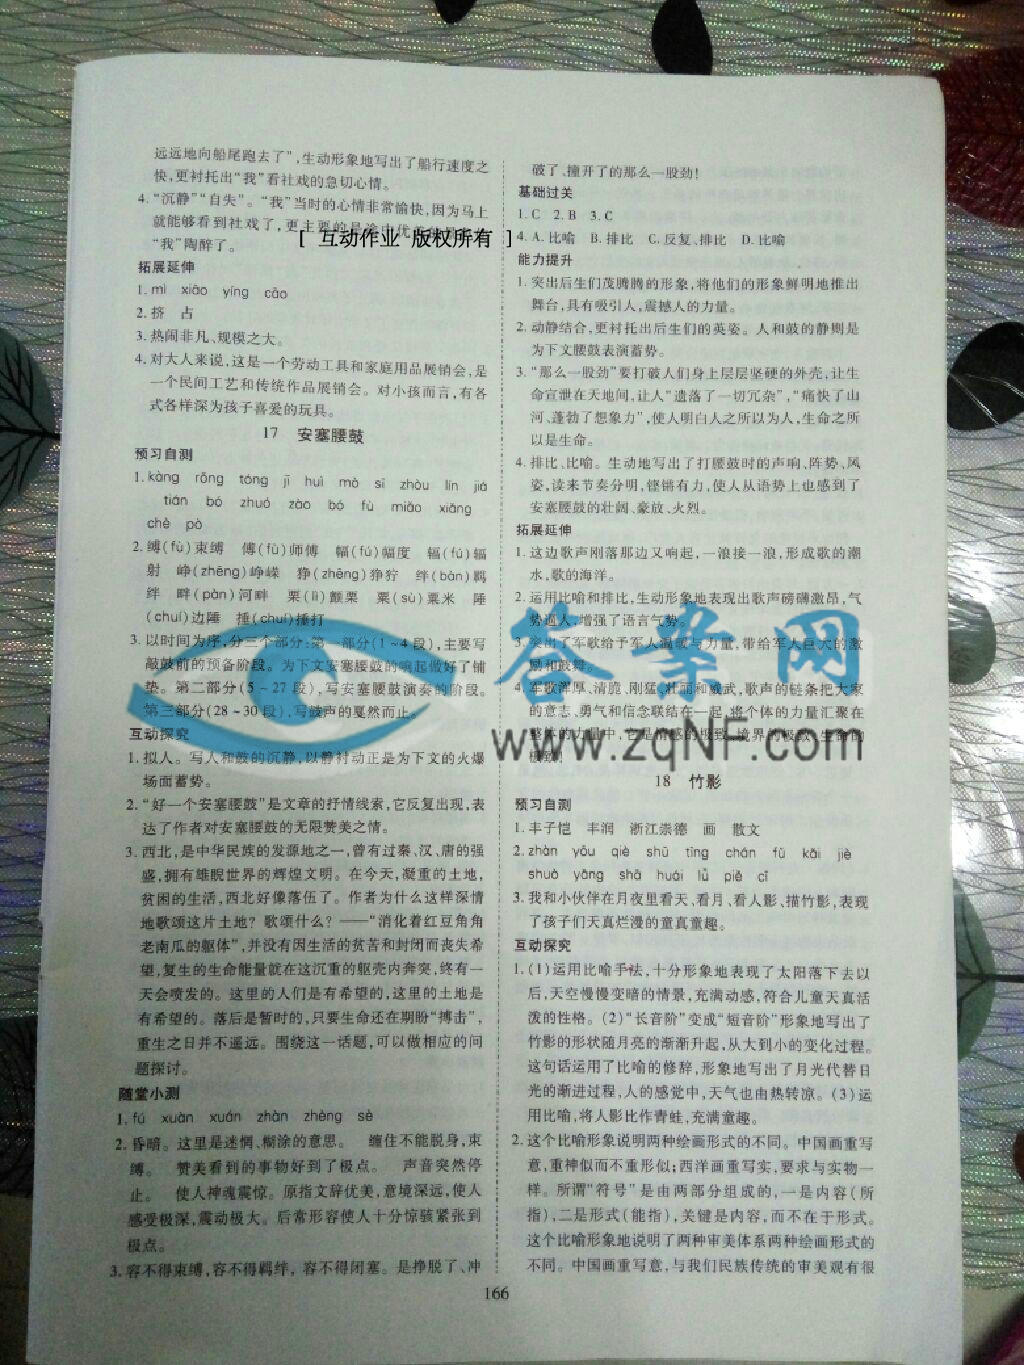 远远地向船尾跑去了”，生动形象地写出了船行速度之
快，更衬托出“我”看社戏的急切心情。
4. “沉静”“自失”。“我”当时的心情非常愉快，因为马上
就能够看到社戏了，更主要的是途中优
“我”陶醉了。
[ 互动作业 版权所有 ]
拓展延伸
1. mì xiāo yíng cāo
2. 挤 占
3. 热闹非凡、规模之大。
4. 对大人来说，这是一个劳动工具和家庭用品展销会，是
一个民间工艺和传统作品展销会。对小孩而言，有各
式各样深为孩子喜爱的玩具。
17 安塞腰鼓
预习自测
1. kàng rǒng tóng jī huì mò sī zhòu lín jiá
tián bó zhuó zào bó fù miǎo xiāng
chè pò
2. 缚(fù)束缚 傅(fù)师傅 幅(fú)幅度 辐(fú)辐
射 峥(zhēng)峥嵘 狰(zhēng)狰狞 绊(bàn)羁
绊 畔(pàn)河畔 栗(lì)颤栗 粟(sù)粟米 陲
(chuí)边陲 捶(chuí)捶打
3. 以时间为序，分三个部分：第一部分(1~4段)，主要写
敲鼓前的预备阶段。为下文安塞腰鼓的响起做好了铺
垫。第二部分(5~27段)，写安塞腰鼓演奏的阶段。
第三部分(28~30段)，写鼓声的戛然而止。
互动探究
1. 拟人。写人和鼓的沉静，以静衬动正是为下文的火爆
场面蓄势。
2. “好一个安塞腰鼓”是文章的抒情线索，它反复出现，表
达了作者对安塞腰鼓的无限赞美之情。
3. 西北，是中华民族的发源地之一，曾有过秦、汉、唐的强
盛，拥有雄睨世界的辉煌文明。在今天，凝重的土地，
贫困的生活，西北好像落伍了。作者为什么这样深情
地歌颂这片土地？歌颂什么？——“消化着红豆角角
老南瓜的躯体”，并没有因生活的贫苦和封闭而丧失希
望，复生的生命能量就在这沉重的躯壳内奔突，终有一
天会喷发的。这里的人们是有希望的，这里的土地是
有希望的。落后是暂时的，只要生命还在期盼“搏击”，
重生之日并不遥远。围绕这一话题，可以做相应的问
题探讨。
随堂小测
1. fú xuàn xuán zhàn zhèng sè
2. 昏暗。这里是迷惘、糊涂的意思。 缠住不能脱身，束
缚。 赞美看到的事物好到了极点。 声音突然停
止。 使人神魂震惊。原指文辞优美，意境深远，使人
感受极深，震动极大。后常形容使人十分惊骇紧张到
极点。
3. 容不得束缚，容不得羁绊，容不得闭塞。是挣脱了、冲
破了、撞开了的那么一股劲！
基础过关
1. C 2. B 3. C
4. A. 比喻 B. 排比 C. 反复、排比 D. 比喻
能力提升
1. 突出后生们茂腾腾的形象，将他们的形象鲜明地推出
舞台，具有吸引人，震撼人的力量。
2. 动静结合，更衬托出后生们的英姿。人和鼓的静则是
为下文腰鼓表演蓄势。
3. “那么一股劲”要打破人们身上层层坚硬的外壳，让生
命宣泄在天地间，让人“遗落了一切冗杂”，“痛快了山
河、蓬勃了想象力”，使人明白人之所以为人，生命之所
以是生命。
4. 排比、比喻。生动地写出了打腰鼓时的声响、阵势、风
姿，读来节奏分明，铿锵有力，使人从语势上也感到了
安塞腰鼓的壮阔、豪放、火烈。
拓展延伸
1. 这边歌声刚落那边又响起，一浪接一浪，形成歌的潮
水，歌的海洋。
2. 运用比喻和排比，生动形象地表现出歌声磅礴激昂，气
势逼人，增强了语言气势。
3. 突出了军歌给予军人温暖与力量，带给军人巨大的激
励和鼓舞。
4. 军歌浑厚、清脆、刚猛、壮丽和威武，歌声的链条把大家
的意志、勇气和信念联结在一起，将个体的力量汇聚在
整体的力量中，它是情感的极致、境界的极致、生命的
极致！
答案网
www.zqNF.com
18 竹影
预习自测
1. 丰子恺 丰润 浙江崇德 画 散文
2. zhàn yōu qiè shū tīng chán fú kǎi jiè
shuò yāng shā huái lǜ piē cǐ
3. 我和小伙伴在月夜里看天、看月、看人影、描竹影，表现
了孩子们天真烂漫的童真童趣。
互动探究
1. (1)运用比喻手法，十分形象地表现了太阳落下去以
后，天空慢慢变暗的情景，充满动感，符合儿童天真活
泼的性格。(2)“长音阶”变成“短音阶”形象地写出了
竹影的形状随月亮的渐渐升起，从大到小的变化过程。
这句话运用了比喻的修辞，形象地写出了月光代替日
光的渐进过程，人的感觉中，天气也由热转凉。(3)运
用比喻，将人影比作青蛙，充满童趣。
2. 这个比喻形象说明两种绘画形式的不同。中国画重写
意，重神似而不重形似；西洋画重写实，要求与实物一
样。所谓“符号”是由两部分组成的，一是内容(所
指)，二是形式(能指)，关键是内容，而不在于形式。
这个比喻形象地说明了两种审美体系两种绘画形式的
不同。中国画重写意，与我们民族传统的审美观有很
166